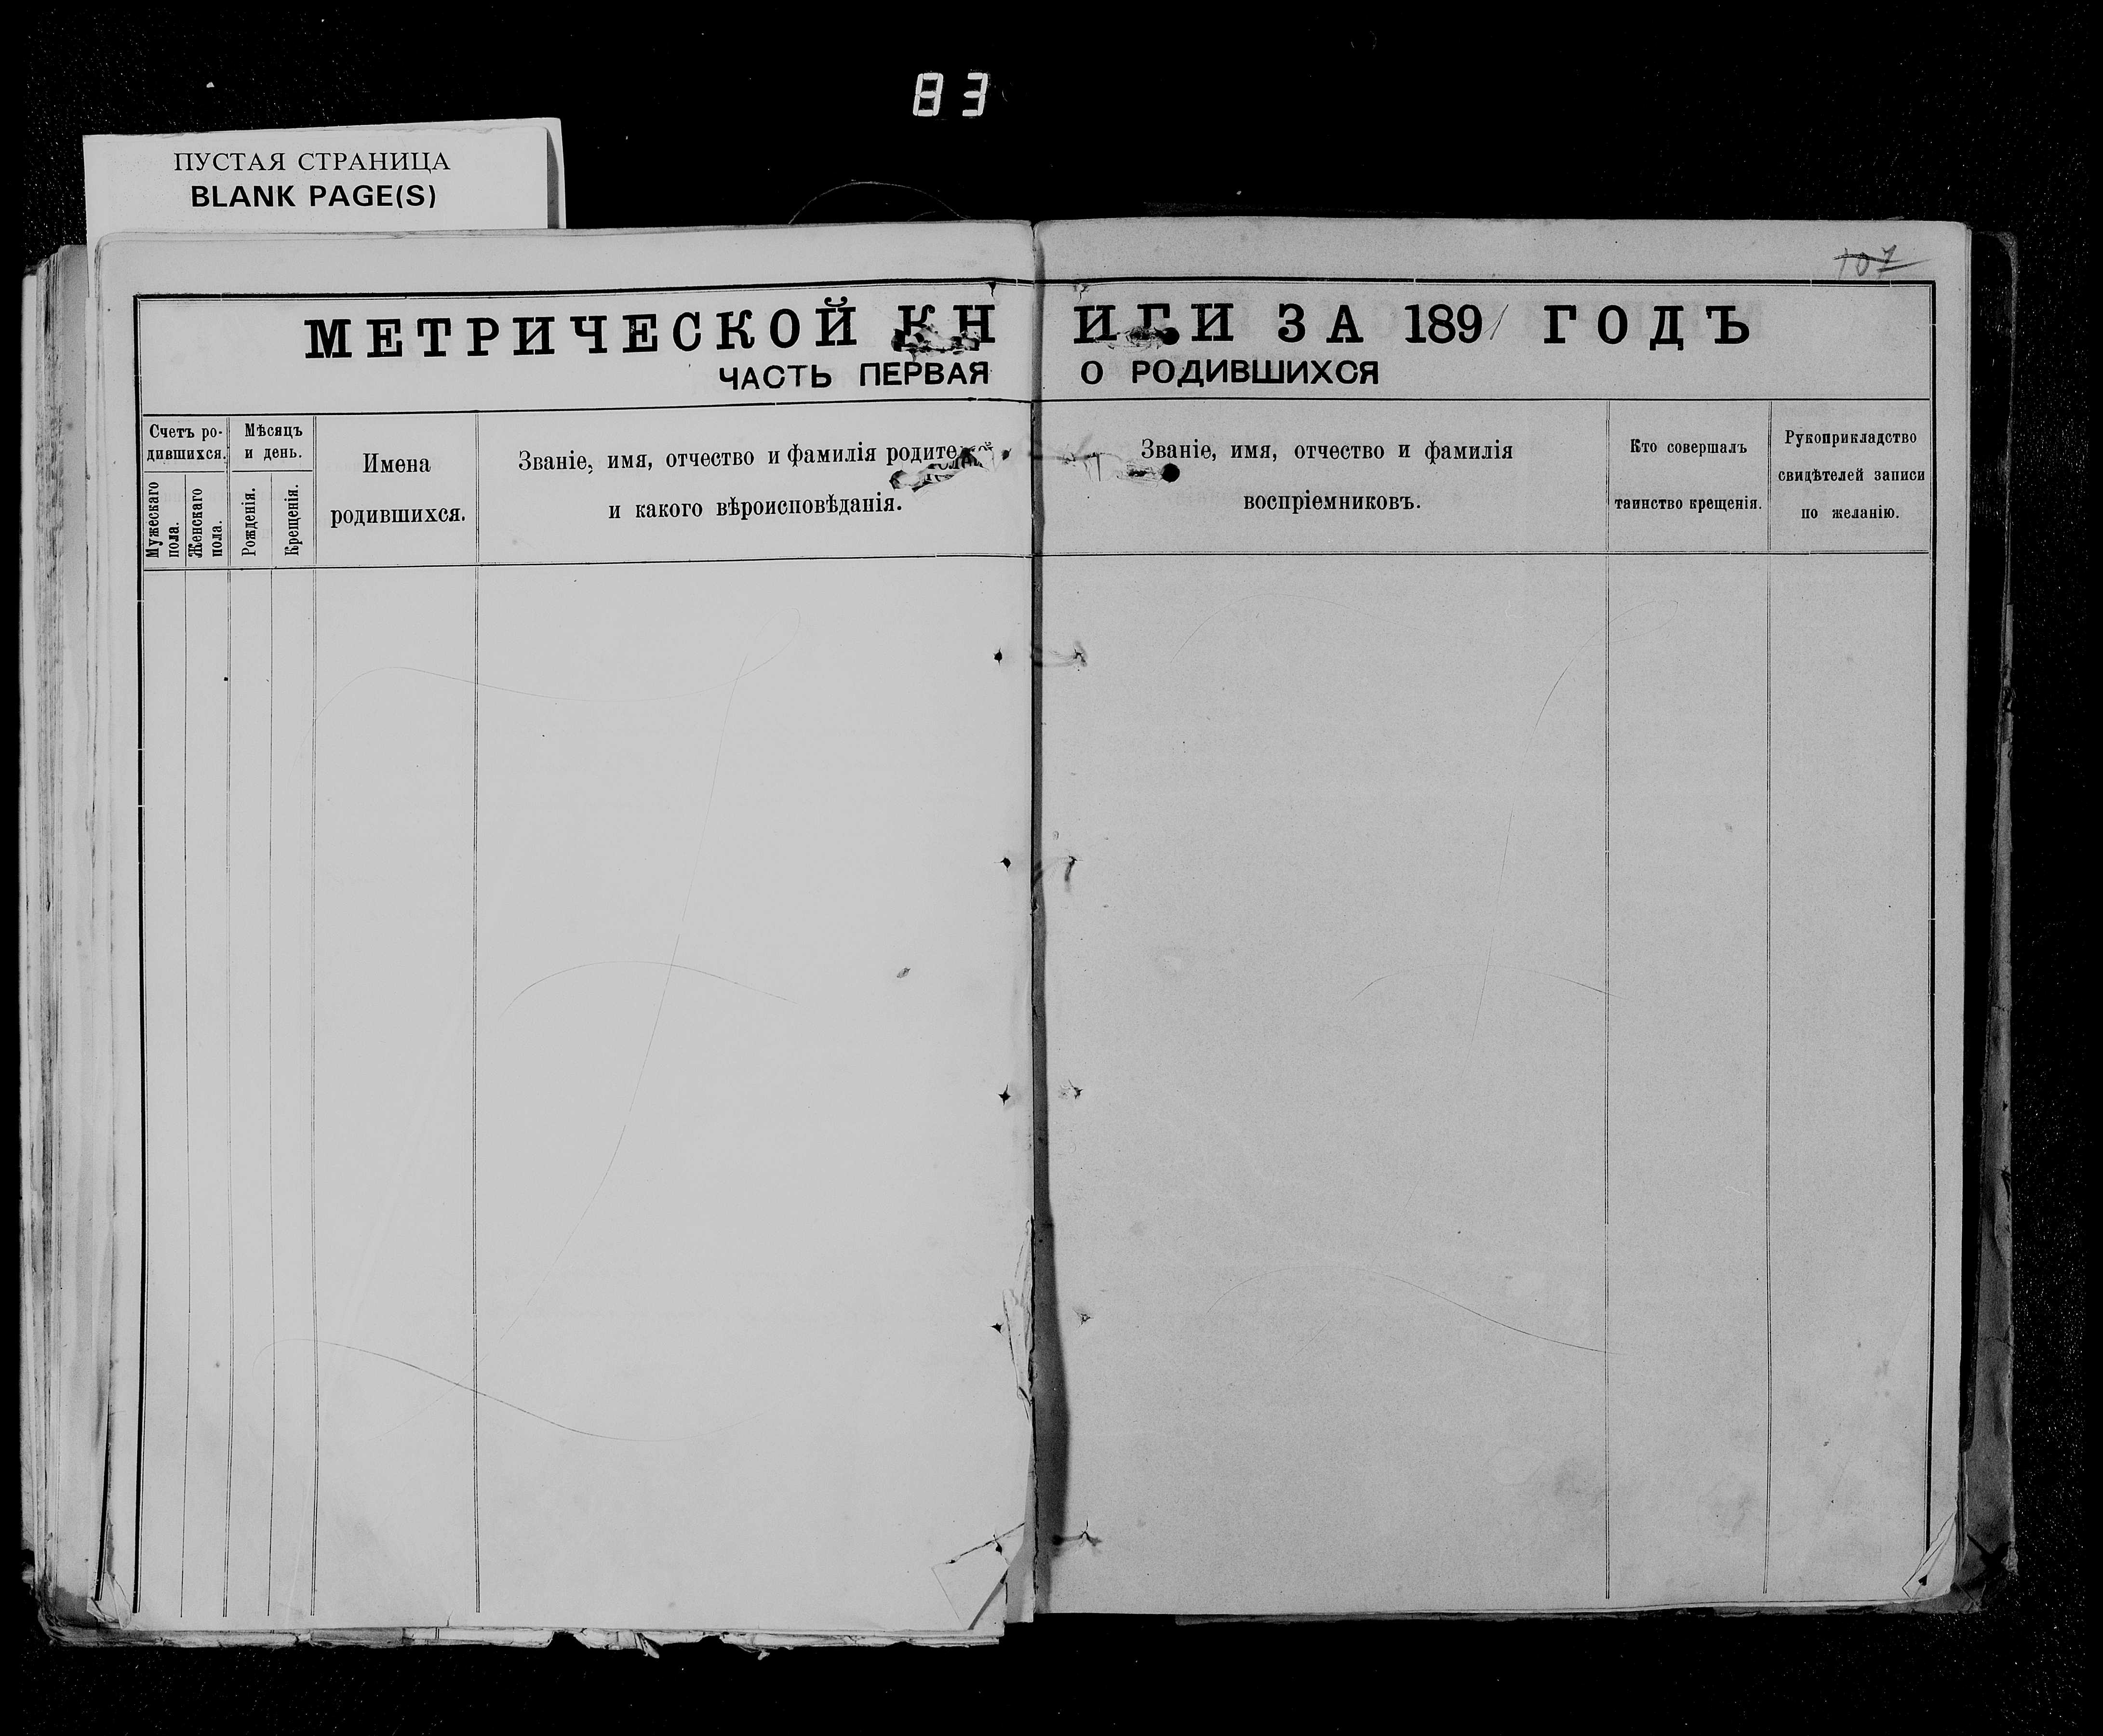 83
ПУСТАЯ СТРАНИЦА
BLANK PAGE(S)
107
МЕТРИЧЕСКОЙ КНИГИ ЗА 1891 ГОДЪ
ЧАСТЬ ПЕРВАЯ О РОДИВШИХСЯ
Счетъ ро-
дившихся.
Мужескаго
пола.
Женскаго
пола.
Мѣсяцъ
и день.
Рожденія.
Крещенія.
Имена
родившихся.
Званіе, имя, отчество и фамилія родителей
и какого вѣроисповѣданія.
Званіе, имя, отчество и фамилія
воспріемниковъ.
Кто совершалъ
таинство крещенія.
Рукоприкладство
свидѣтелей записи
по желанію.